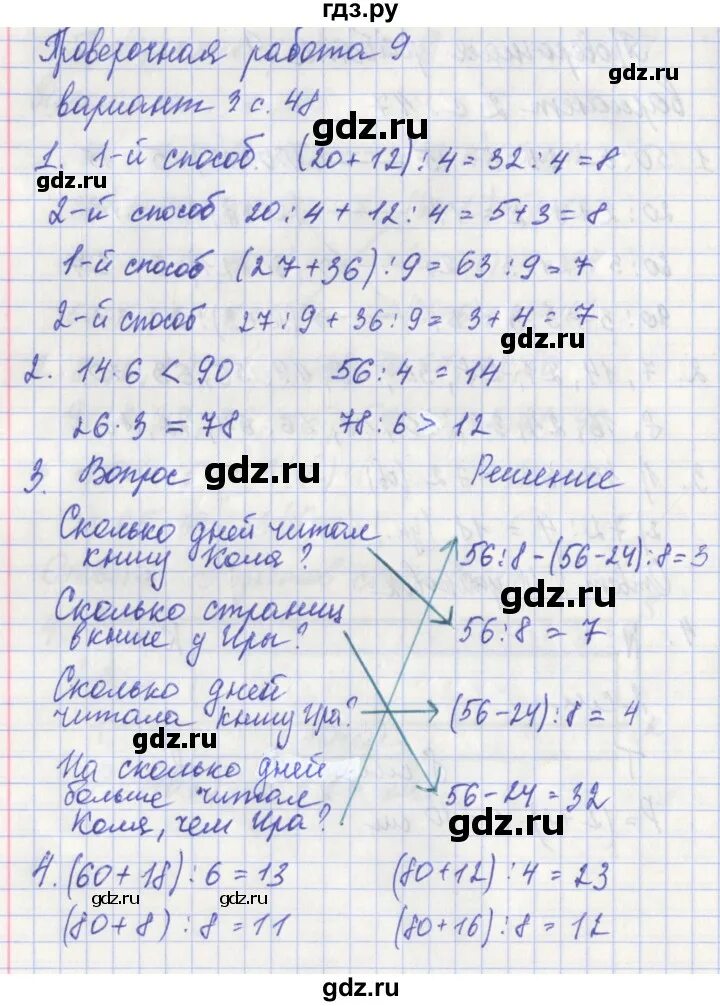 гдз.ру
Проверочная работа 9
gdz.ru
вариант 3 с. 48
gdz.ru
1. 1-й способ. (20+12):4=32:4=8
gdz.ru
2-й способ 20:4+12:4=5+3=8
1-й способ (27+36):9=63:9=7
2-й способ 27:9+36:9=3+4=7
gdz.ru
2. 14·6<90 56:4=14
26·3=78 78:6>12
3. Вопрос Решение
gdz.ru
Сколько дней читал
книгу Коля? 56:8-(56-24):8=3
gdz.ru
Сколько страниц
в книге у Иры? 56:8=7
Сколько дней
читала книгу Ира? (56-24):8=4
gdz.ru
На сколько дней
больше читал 56-24=32
Коля, чем Ира?
gdz.ru
4. (60+18):6=13 (80+12):4=23
gdz.ru gdz.ru
(80+8):8=11 (80+16):8=12
gdz.ru